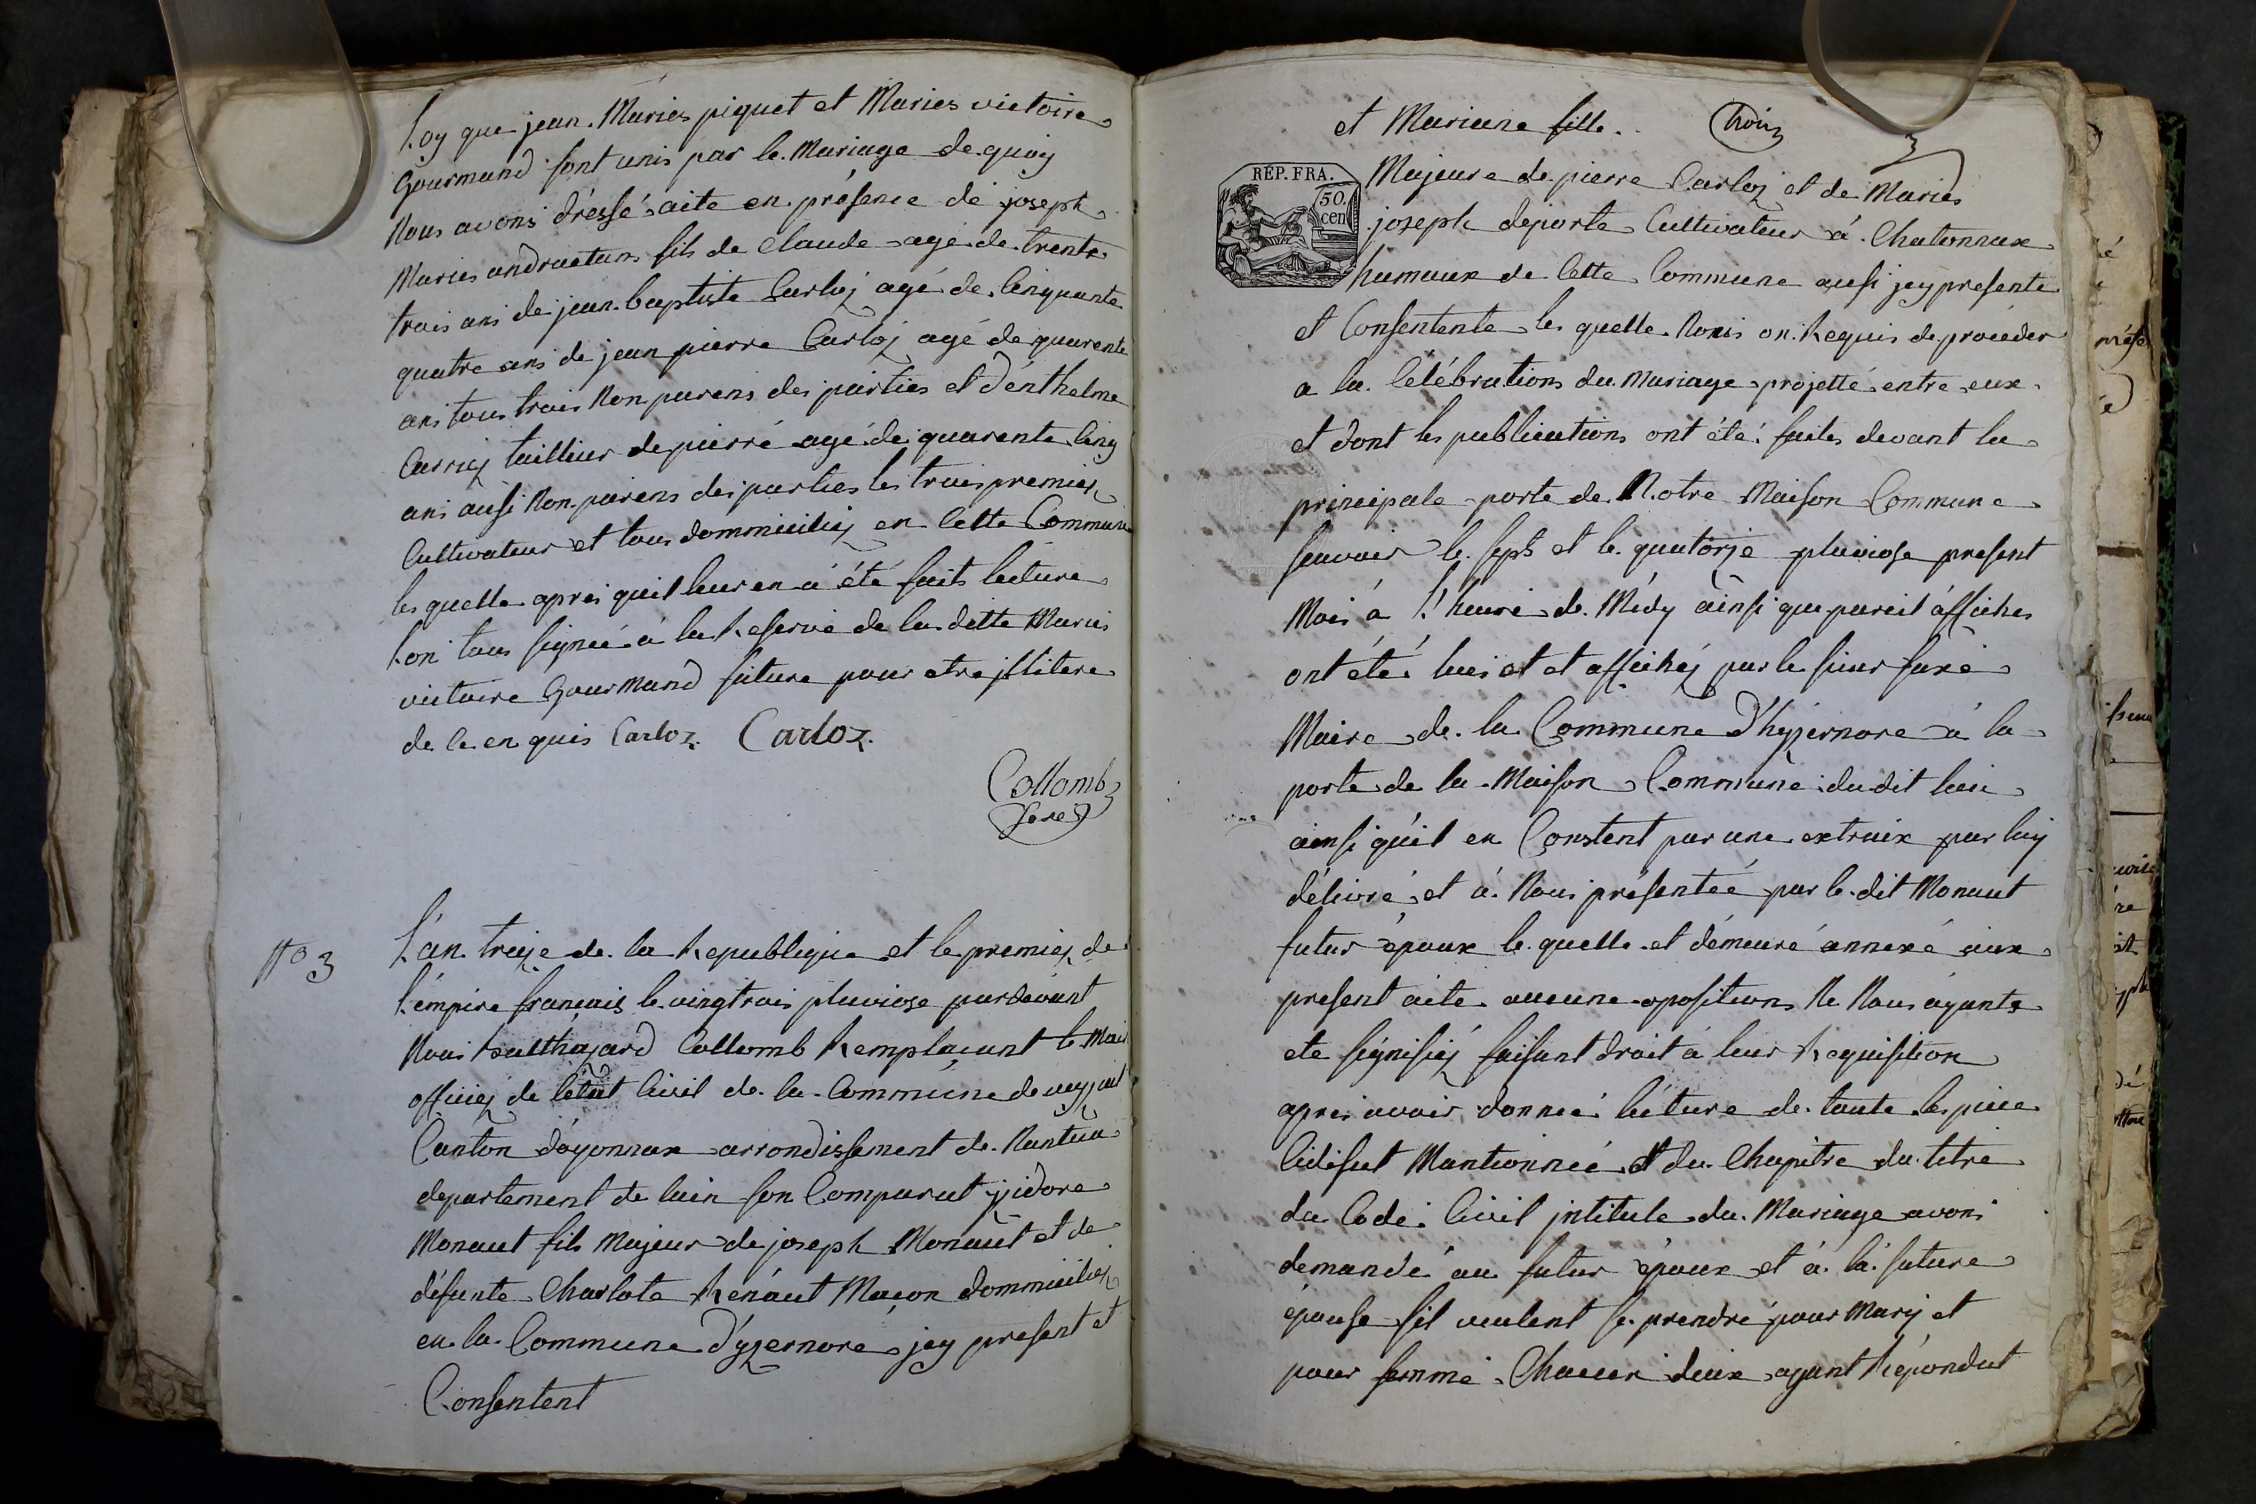 Loy que jean Maries piquet et Maries victoire
Gourmand sont unis par le Mariage de quoy
Nous avons dréssé aite en présence de joseph
Maries andruetans fils de Claude agé de trente
trois ans de jean baptiste Carloz agé de Cinquante
quatre ans de jean pierre Carloz agé de quarente
ans tous trois Non parens des parties et d'énthelme
Carriez tailleur de pierré agé de quarente Cinq
ans aussi Non parens des parties les trois premiez
Cultivateur et tous dommiciliez en Cette Commune
les quelle apres quil leur en a été fait lecture
Son tous signée à la Reserve de la ditte Maries
victoire Gourmand future pour etre jllitere
de ce en quis Carloz Carloz
Collomb
N° 3
L'an treize de la Republique et le premiez de
l'émpire français le vingtrois pluviose pardevant
Nous balthazard Collomb Remplacant le Maire
officiez de létat Civil de la Commune de veyziat
Canton d'oyonnax arrondissement de Nantua
departement de lain son Comparut jzidore
Monaut fils Majeur de joseph Monaut et de
défunte Charlote Renaut Maçon dommiciliez
en la Commune d'yzernore jcy present et
Consentent
et Mariane fille
trois
RÉP. FRA.
50.
cen
Majeure de pierre Carloz et de Maries
joseph deporte Cultivateur à Chatonnax
hamaux de Cette Commune aussi jcy presente
et Consentente les quelle Nous on Requis de procéder
a la Célébrations du Mariage projetté entre eux
et dont les publications ont été faites devant la
principale porte de Notre Maison Commune
scavoir le sept et le quatorze pluviose present
Mois à l'heure de Midy ainsi que pareil affiches
ont été lues et et affichéz par le sieur
Maire de la Commune d'hyzernore à la
porte de la Maison Commune dudit lieu
ainsi qu'il en Constent par une extraix par luy
délivré et à Nous présentée par le dit Monaut
futur époux le quelle et démeuré annexé aux
present acte aucune opositions Ne Nous ayants
ete signifiéz faisant droit à leur Requisition
apres avoir donnée lécture de toute les piece
Cidésut Mantionnée et du Chapitre du titre
du Code Civil jntitule du Mariage avons
demandé au futur époux et à la future
épouse sil veulent se prendre pour Mary et
pour femme Chacun deux ayant Répondut